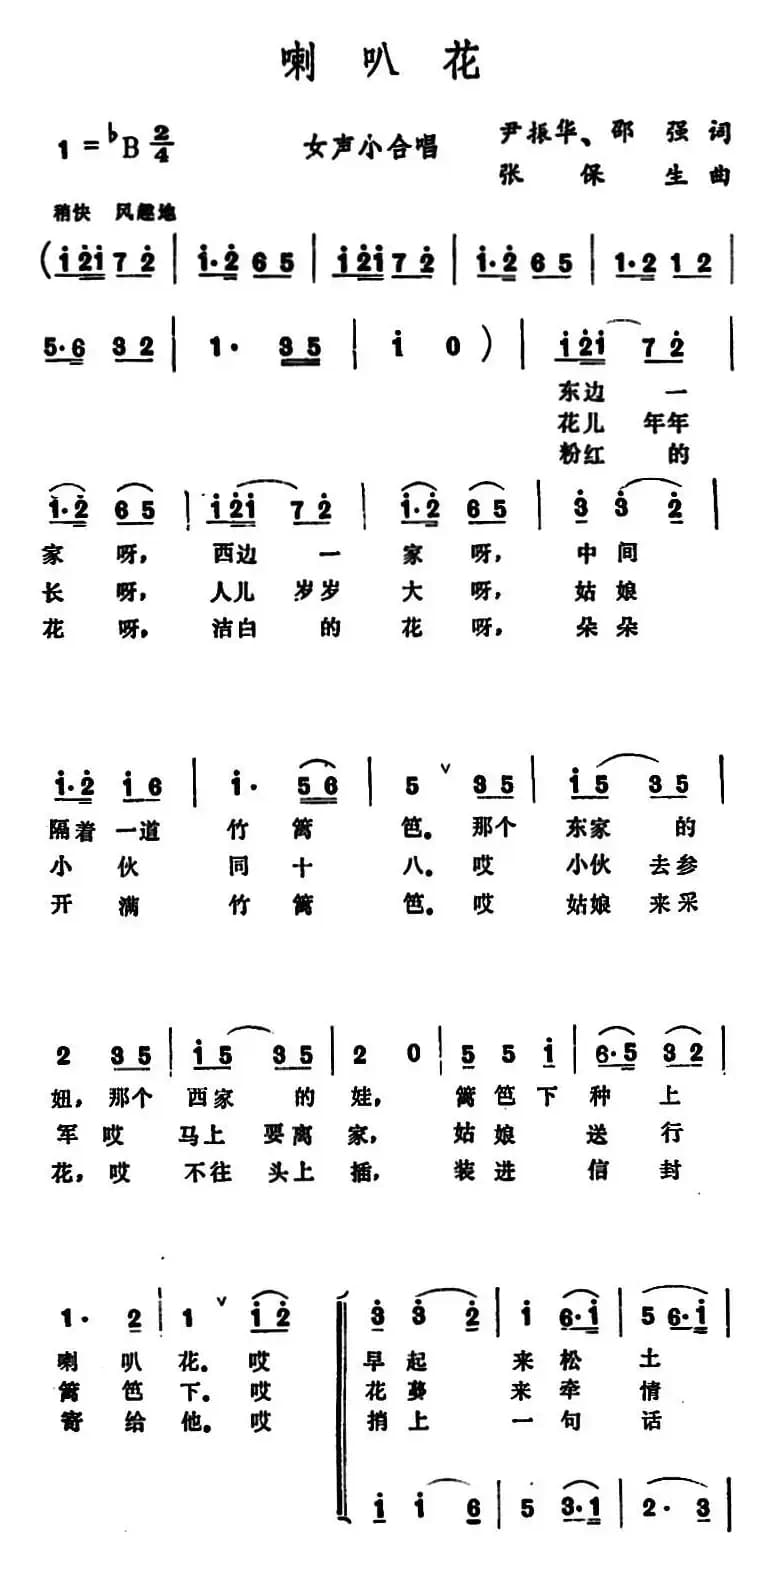 喇叭花
1=♭B 2/4 女声小合唱 尹振华、邵强词
张保生曲
稍快 风趣地
(i̇ 2̇i̇ 7 2̇ | i̇·2̇ 6 5 | i̇ 2̇i̇ 7 2̇ | i̇·2̇ 6 5 | 1·2 1 2 |
5·6 3 2 | 1· 3 5 | i̇ 0 ) | i̇ 2̇i̇ 7 2̇ |
东边一
花儿年年
粉红的
i̇·2̇ 6 5 | i̇ 2̇i̇ 7 2̇ | i̇·2̇ 6 5 | 3̇ 3̇ 2̇ |
家呀，西边一家呀，中间
长呀，人儿岁岁大呀，姑娘
花呀，洁白的花呀，朵朵
i̇·2̇ i̇ 6 | i̇· 5 6 | 5 ˅ 3 5 | i̇ 5 3 5 |
隔着一道竹篱笆。那个东家的
小伙同十八。哎小伙去参
开满竹篱笆。哎姑娘来采
2 3 5 | i̇ 5 3 5 | 2 0 | 5 5 i̇ | 6·5 3 2 |
妞，那个西家的娃，篱笆下种上
军哎马上要离家，姑娘送行
花，哎不往头上插，装进信封
1· 2 | 1 ˅ i̇ 2̇ ‖ 3̇ 3̇ 2̇ | i̇ 6·i̇ | 5 6·i̇ |
喇叭花。哎早起来松土
篱笆下。哎花蔓来牵情
寄给他。哎捎上一句话
i̇ i̇ 6 | 5 3·1 | 2· 3 |